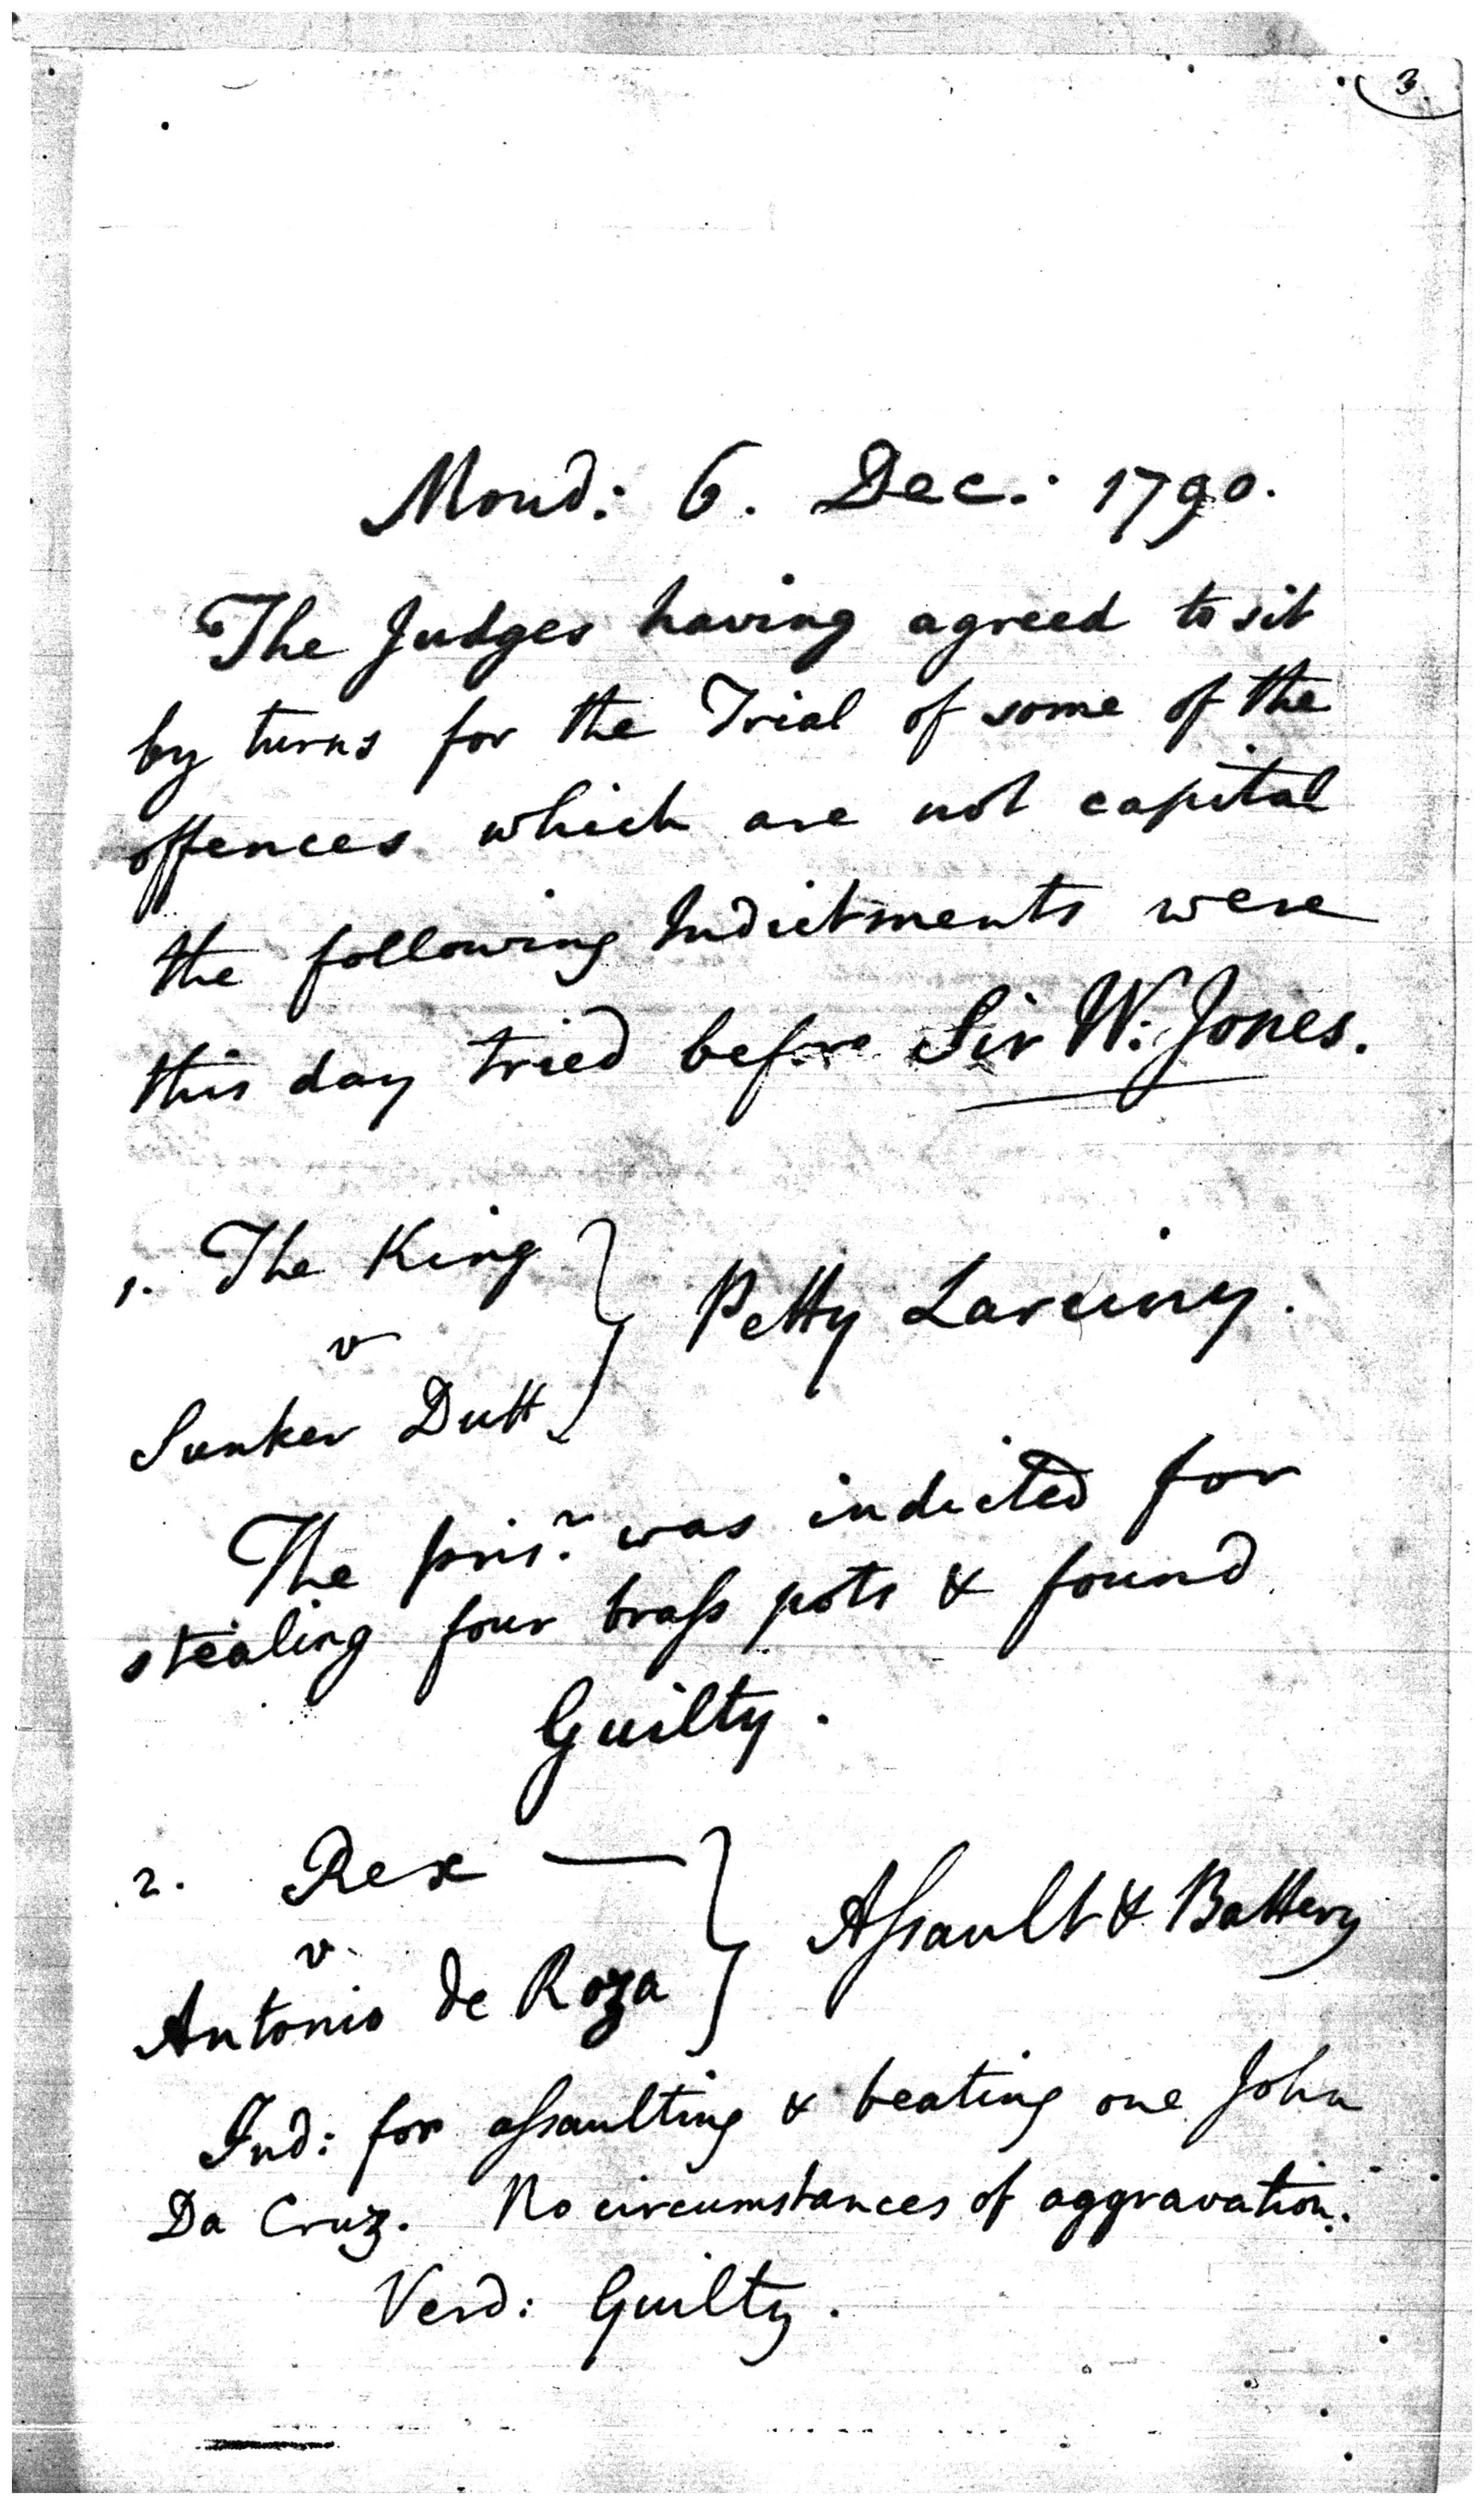 3.
Mond: 6. Dec: 1790.
The Judges having agreed to sit
by turns for the Trial of some of the
offences which are not capital
the following Indictments were
this day tried before Sir W: Jones.
1. The King
v
Petty Larciny.
Sunker Dutt
The prisr. was indicted for
stealing four braſs pots & found
Guilty.
2. Rex —
v.
Aſsault & Battery
Antonio de Roza
Ind: for aſsaulting & beating one John
Da Cruz. No circumstances of aggravation.
Verd: Guilty.